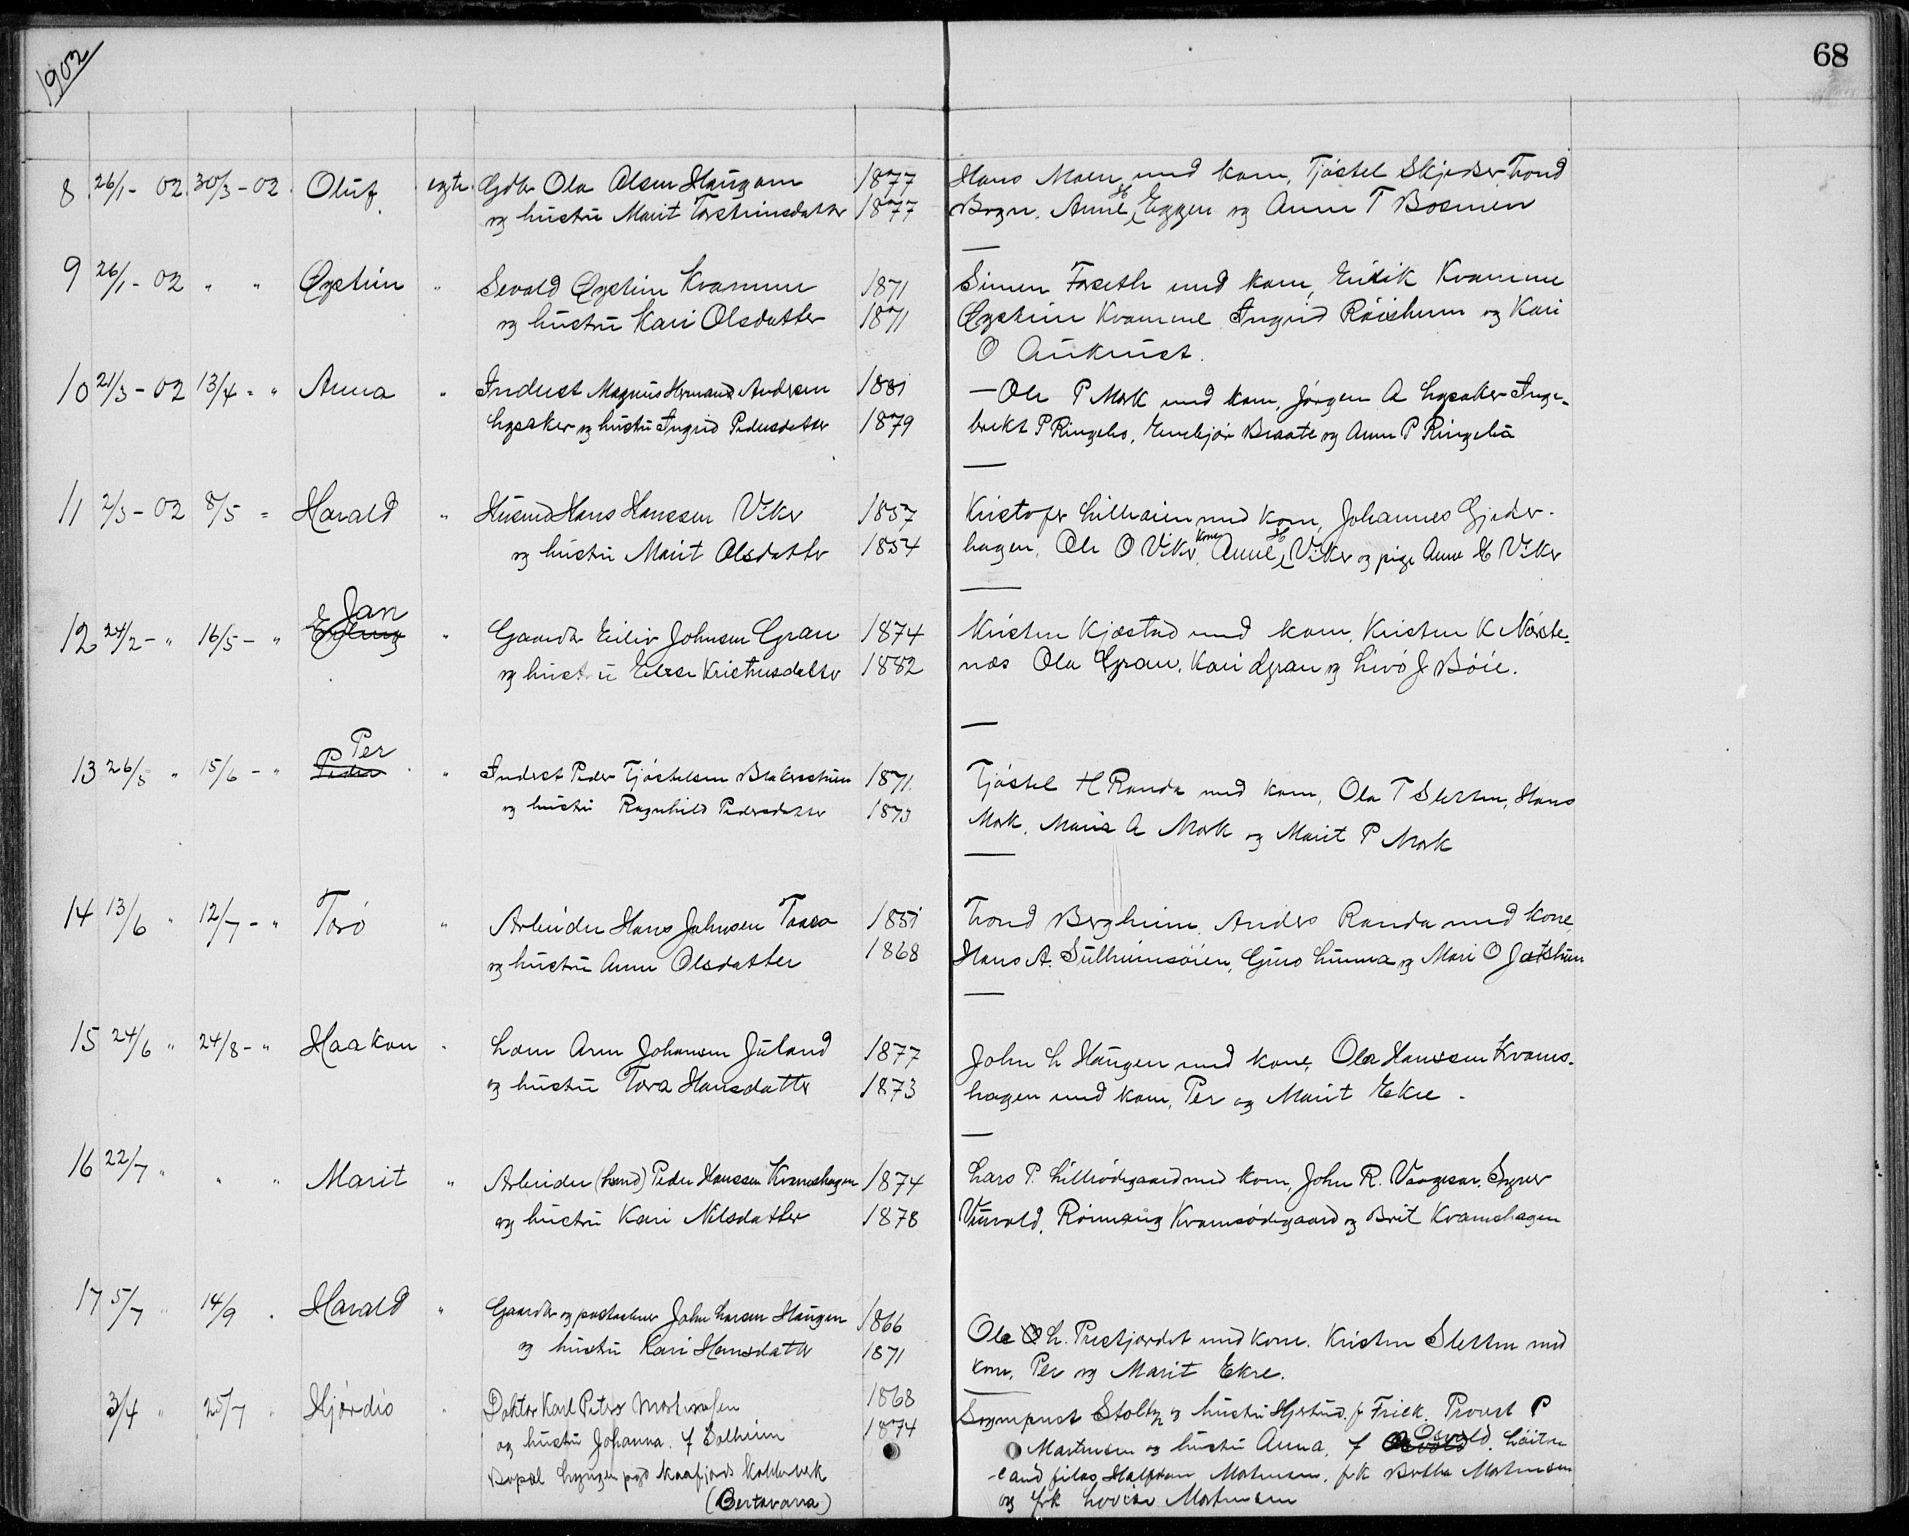 1902
68
8 26/1 - 02. 30/3 - 02. Oluf. egte. Gdbr Ola Olsen Haugom 1877 Hans Moen med kone, Tjøstel Skjerber Trond
og hustru Marit Torsteinsdatter 1877 Bogn. Anne H Eggen og Anne T Bosmen
9 26/1 - 02 " " Øystein " Sevald Øystein Kvamme 1871 Simen Forseth med kone, Eirik Kvamme
og hustru Kari Olsdatter 1871 Øystein Kvamme Ingrid Røisheim og Kari
O Aukrust.
10 21/3 - 02 13/4 - " Anna " Inderst Magnus Herman Andersen 1881 — Ole P Mork med kone, Jørgen A Lysaker Inge-
Lysaker og hustru Ingrid Pedersdatter 1879 brekt P Ringeho, Embjør Braate og Anne P Ringeho
11 2/3 - 02 8/5 " Harald " Husmd Hans Hanssen Viker 1857 Kristofer Lilleøien med kone, Johannes Gjeder-
og hustru Marit Olsdatter 1854 hagen, Ole O Viker, kone Anne H Viker og pige Anne E Viker
Jan
12 24/2 - " 16/5 - " Erling " Gaardbr Eiliv Johnsen Gran 1874 Kristen Kjæstad med kone, Kristen K Nørste-
og hustru Eline Kristensdatter 1882 næs Ola Gran, Kari Gran og Livø J Bøie.
Per
13 26/5 " 15/6 - " Peder " Inderst Peder Tjøstelsen Blakarstuen 1871. Tjøstel H Randa med kone, Ola T Sletten, Hans
og hustru Ragnhild Pedersdatter 1873 Mork, Maria A Mork og Marit P Mork
14 13/6 " 12/7 - " Torø " Arbeider Hans Johnsen Taaro 1851 Trond Bergheim, Anders Randa med kone
og hustru Anne Olsdatter 1868 Hans A. Sulheimsøien, Guro Linna og Mari O Jotsheim
15 24/6 " 24/8 - " Haakon " Lærer Arne Johansen Juland 1877 John L Haugen med kone, Ola Hanssen Kvams-
og hustru Tora Hansdatter 1873 hagen med kone, Per og Marit Ekre -
16 22/7 " " " Marit " Arbeider (Land) Peder Hanssen Kvamshagen 1874 Lars P. Lilleødegaard med kone, John R. Vaagesar, Syver
og hustru Kari Nilsdatter 1878 Runnaug Kvamsødegaard og Brit Kvamshagen
17 5/7 " 14/9 " Harald " Gaardbr og John Larsen Haugen 1866 Ole L. Prestjordet med kone. Kristen Sletten med
og hustru Kari Hansdatter 1871 kone, Per og Marit Ekre.
3/4 " 25/7 " Hjørdis " Doktor Karl Petrus Mortensen 1868 Sognprest Stoltz og hustru Hjertrud f Frick. Proust P
og hustru Johanna. f Solheim 1874 Mortensen og hustru Anna, f Osvold. Løitn-
Bopæl Lyngen pgd Kaafjords Kobberverk Halfdan Mortensen, frk Bertha Mortensen
(Bertavarra) og frk Lovise Mortensen